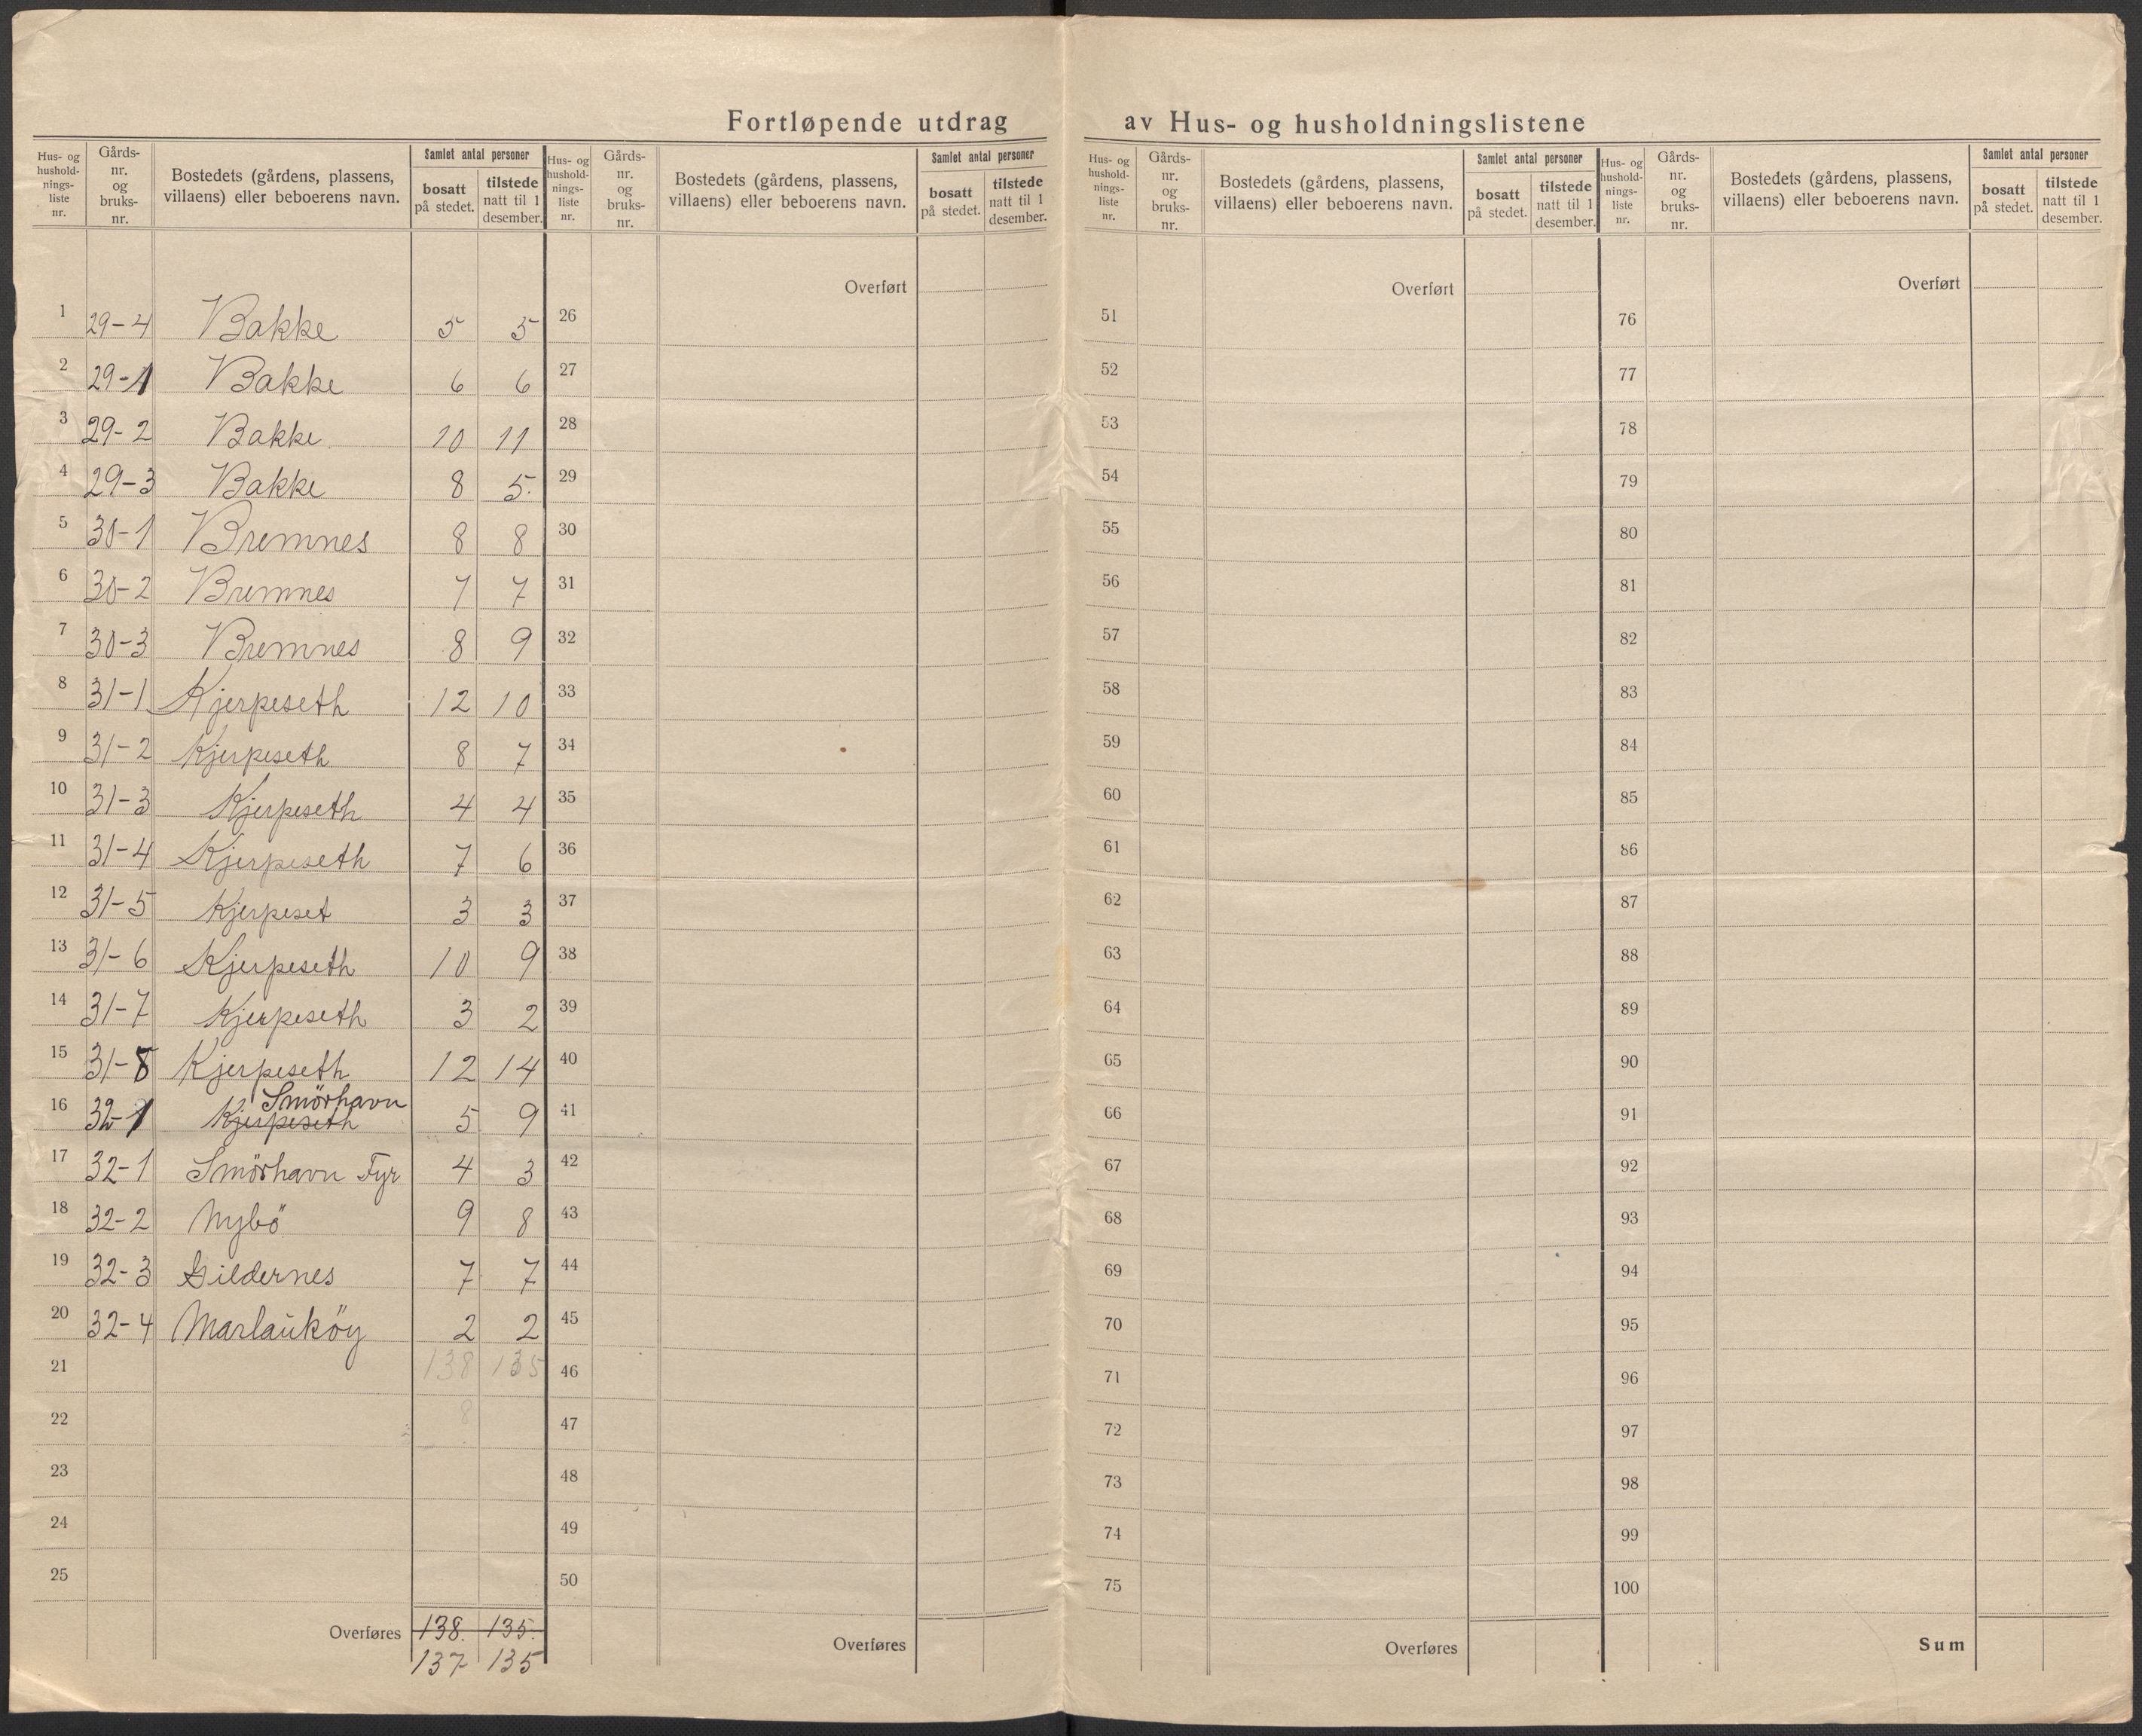 Fortløpende utdrag av Hus- og husholdningslistene
Hus- og hushold-nings-liste nr. Gårds-nr. og bruks-nr. Bostedets (gårdens, plassens, villaens) eller beboerens navn. Samlet antal personer bosatt på stedet. tilstede natt til 1 desember.
Hus- og hushold-nings-liste nr. Gårds-nr. og bruks-nr. Bostedets (gårdens, plassens, villaens) eller beboerens navn. Samlet antal personer bosatt på stedet. tilstede natt til 1 desember.
Hus- og hushold-nings-liste nr. Gårds-nr. og bruks-nr. Bostedets (gårdens, plassens, villaens) eller beboerens navn. Samlet antal personer bosatt på stedet. tilstede natt til 1 desember.
Hus- og hushold-nings-liste nr. Gårds-nr. og bruks-nr. Bostedets (gårdens, plassens, villaens) eller beboerens navn. Samlet antal personer bosatt på stedet. tilstede natt til 1 desember.
1 29-4 Bakke 5 5
2 29-1 Bakke 6 6
3 29-2 Bakke 10 11
4 29-3 Bakke 8 5.
5 30-1 Bremnes 8 8
6 30-2 Bremnes 7 7
7 30-3 Bremnes 8 9
8 31-1 Kjerpeseth 12 10
9 31-2 Kjerpeseth 8 7
10 31-3 Kjerpeseth 4 4
11 31-4 Kjerpeseth 7 6
12 31-5 Kjerpeset 3 3
13 31-6 Kjerpeseth 10 9
14 31-7 Kjerpeseth 3 2
15 31-8 Kjerpeseth 12 14
Smörhavn
16 32-1 Kjerpeseth 5 9
17 32-1 Smörhavn Fyr 4 3
18 32-2 Nybö 9 8
19 32-3 Gildernes 7 7
20 32-4 Marlauköy 2 2
21 138 135
22 8
23
24
25
Overføres 138. 135.
137 135
Overført
26
27
28
29
30
31
32
33
34
35
36
37
38
39
40
41
42
43
44
45
46
47
48
49
50
Overføres
Overført
51
52
53
54
55
56
57
58
59
60
61
62
63
64
65
66
67
68
69
70
71
72
73
74
75
Overføres
Overført
76
77
78
79
80
81
82
83
84
85
86
87
88
89
90
91
92
93
94
95
96
97
98
99
100
Sum